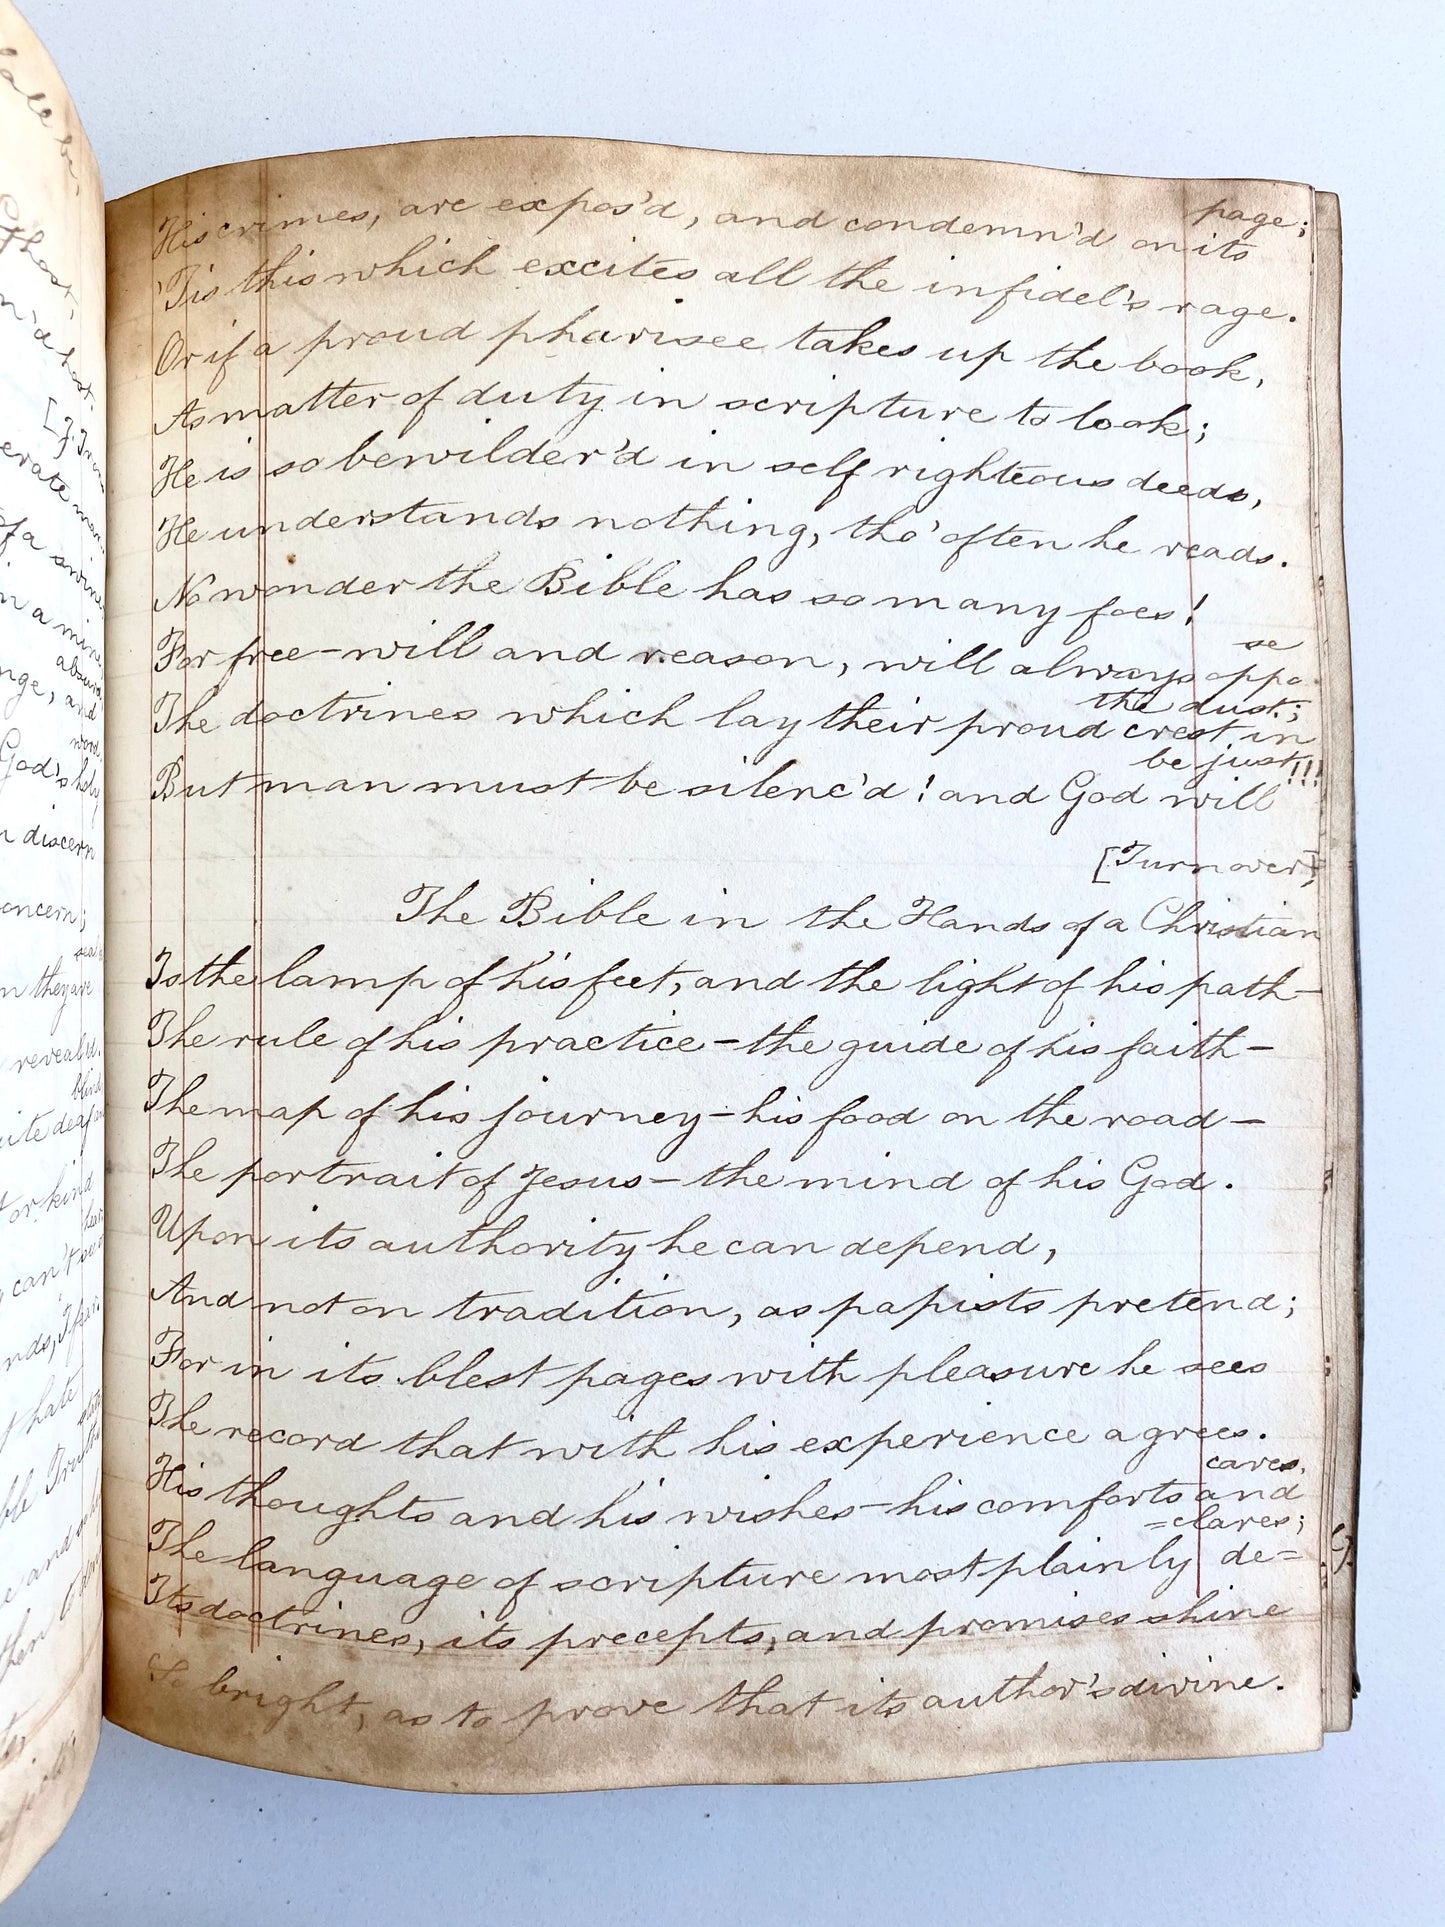 all be-
Ghost,
n'd host.
[J. Irons
erate man
of a swine,
in a mine,
absurd,
nge, and
word.
God's holy
n discern
oncern;
seal'd
n they are
reveal'd.
blind
uite deaf and
t or kind
hear.
can't see or
nds, I fear.
hate
state
ble Truths
His crimes, are expos'd, and condemn'd on its
page;
'Tis this which excites all the infidel's rage.
Or if a proud pharisee takes up the book,
As matter of duty in scripture to look;
He is so bewilder'd in self righteous deeds,
He understands nothing, tho' often he reads.
No wonder the Bible has so many foes!
For free-will and reason, will always oppo
se
The doctrines which lay their proud crest in
the dust;
But man must be silenc'd! and God will
be just!!!
[Turn over],
The Bible in the Hands of a Christian
Is the lamp of his feet, and the light of his path-
The rule of his practice-the guide of his faith-
The map of his journey-his food on the road-
The portrait of Jesus-the mind of his God.
Upon its authority he can depend,
And not on tradition, as papists pretend;
For in its blest pages with pleasure he sees
The record that with his experience agrees.
His thoughts and his wishes-his comforts and
cares,
The language of scripture most plainly de=
=clares;
Its doctrines, its precepts, and promises shine
So bright, as to prove that its author's divine.